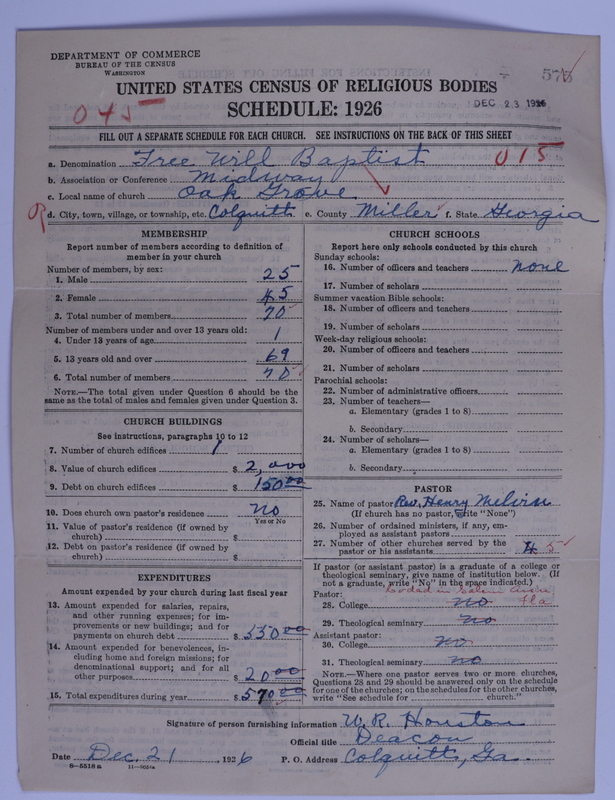 DEPARTMENT OF COMMERCE
BUREAU OF THE CENSUS
WASHINGTON
575
UNITED STATES CENSUS OF RELIGIOUS BODIES
SCHEDULE: 1926
DEC 23 1926
045
FILL OUT A SEPARATE SCHEDULE FOR EACH CHURCH. SEE INSTRUCTIONS ON THE BACK OF THIS SHEET
a. Denomination Free Will Baptist 015
b. Association or Conference Midway
c. Local name of church Oak Grove
d. City, town, village, or township, etc. Colquitt e. County Miller f. State Georgia
MEMBERSHIP
Report number of members according to definition of
member in your church
Number of members, by sex:
1. Male 25
2. Female 45
3. Total number of members 70
Number of members under and over 13 years old:
4. Under 13 years of age 1
5. 13 years old and over 69
6. Total number of members 70
NOTE.—The total given under Question 6 should be the
same as the total of males and females given under Question 3.
CHURCH BUILDINGS
See instructions, paragraphs 10 to 12
7. Number of church edifices 1
8. Value of church edifices $ 2,000
9. Debt on church edifices $ 150.00
10. Does church own pastor's residence no
Yes or No
11. Value of pastor's residence (if owned by
church) $
12. Debt on pastor's residence (if owned by
church) $
EXPENDITURES
Amount expended by your church during last fiscal year
13. Amount expended for salaries, repairs,
and other running expenses; for im-
provements or new buildings; and for
payments on church debt $ 550.00
14. Amount expended for benevolences, in-
cluding home and foreign missions; for
denominational support; and for all
other purposes $ 20.00
15. Total expenditures during year $ 570.00
CHURCH SCHOOLS
Report here only schools conducted by this church
Sunday schools:
16. Number of officers and teachers none
17. Number of scholars
Summer vacation Bible schools:
18. Number of officers and teachers
19. Number of scholars
Week-day religious schools:
20. Number of officers and teachers
21. Number of scholars
Parochial schools:
22. Number of administrative officers
23. Number of teachers—
a. Elementary (grades 1 to 8)
b. Secondary
24. Number of scholars—
a. Elementary (grades 1 to 8)
b. Secondary
PASTOR
25. Name of pastor Rev. Henry Melvin
(If church has no pastor, write "None")
26. Number of ordained ministers, if any, em-
ployed as assistant pastors
27. Number of other churches served by the
pastor or his assistants 4 5
If pastor (or assistant pastor) is a graduate of a college or
theological seminary, give name of institution below. (If
not a graduate, write "No" in the space indicated.)
Pastor:
28. College no Fla
29. Theological seminary no
Assistant pastor:
30. College no
31. Theological seminary no
NOTE.—Where one pastor serves two or more churches,
Questions 28 and 29 should be answered only on the schedule
for one of the churches; on the schedules for the other churches,
write "See schedule for church."
Signature of person furnishing information W. R. Houston
Official title Deacon
Date Dec. 21, 1926 P. O. Address Colquitt, Ga.